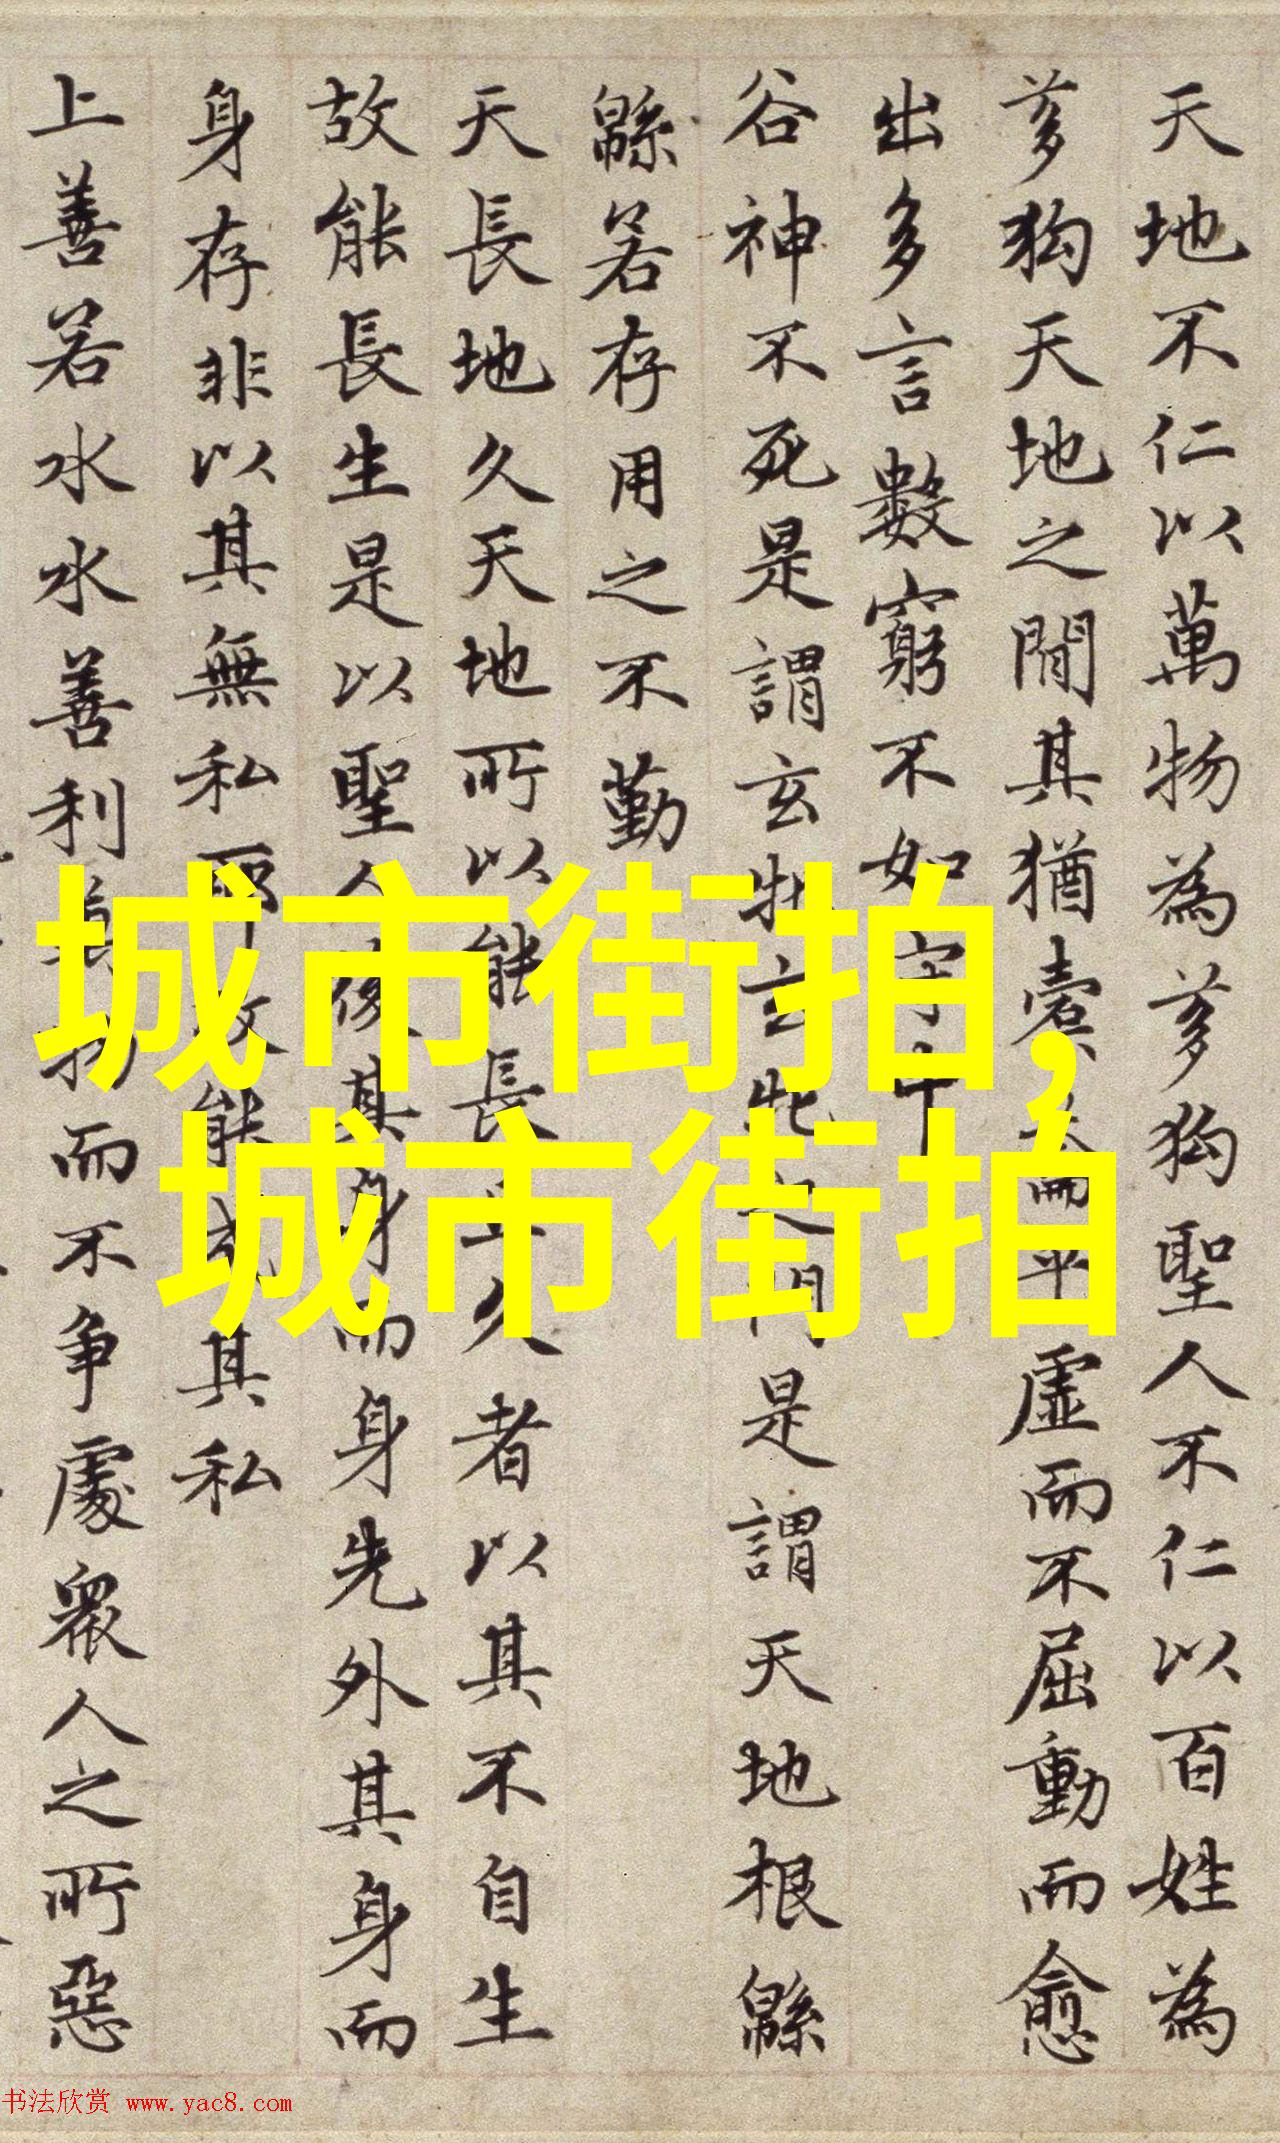 天地不仁以萬物為芻狗聖人不仁以百姓為
芻狗天地之間其猶橐籥乎虛而不屈動而愈
出多言數窮不如守中
谷神不死是謂玄牝玄牝之門是謂天地根緜
緜若存用之不勤
天長地久天地所以能長且久者以其不自生
故能長生是以聖人後其身而身先外其身而
身存非以其無私耶故能成其私
上善若水水善利萬物而不爭處衆人之所惡
城市街拍,
城市街拍
书法欣赏 www.yac8.com